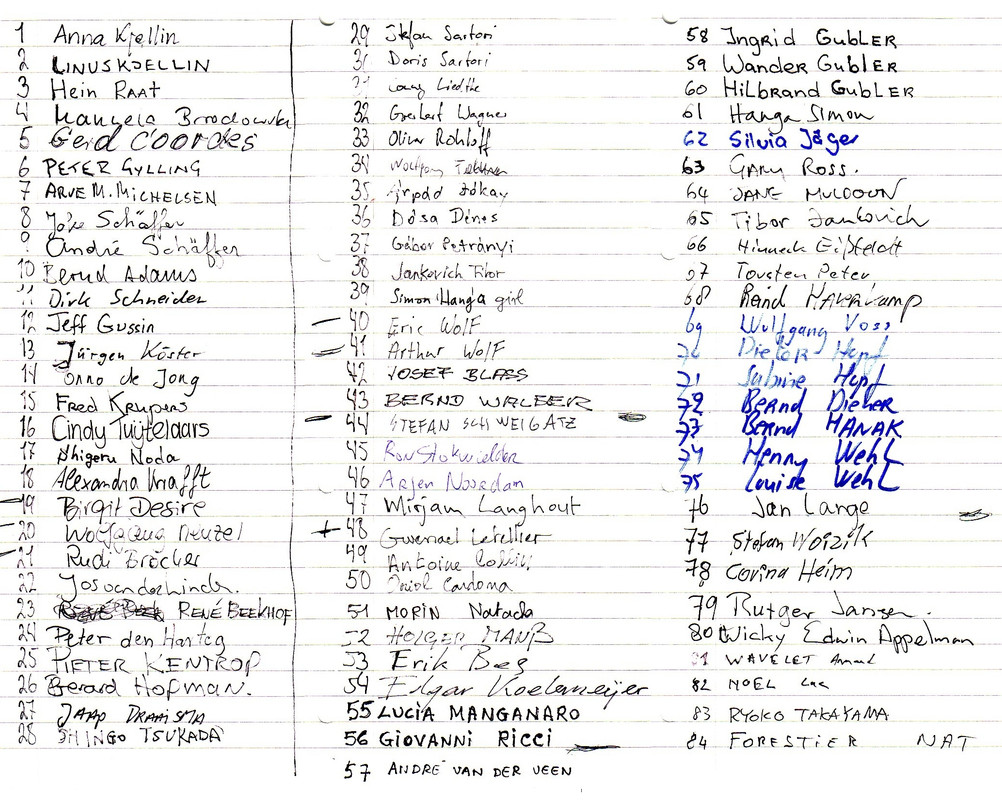 1 Anna Kjellin
2 LINUS KJELLIN
3 Hein RAAT
4 Manuela Brodowski
5 Gerd Coordes
6 PETER GYLLING
7 ARVE M. MICHELSEN
8 Schäffer
9 André Schäffer
10 Bernd Adams
11 Dirk Schneider
12 Jeff Gussin
13 Jürgen Köster
14 Onno de Jong
15 Fred Krupers
16 Cindy Tuijtelaars
17 Shigeru Noda
18 Alexandra Krafft
19 Birgit Desire
20 Wolfgang Menzel
21 Rudi Bröcher
22 Jos vander Linden
23 RENÉ BEEKHOF
24 Peter den Hartog
25 PIETER KENTROP
26 Berard Hofman.
27 JAAP DRAAISMA
28 SHINGO TSUKADA
29 Stefan Sartori
30 Doris Sartori
31 Conny Liedtke
32 Wagner
33 Oliver Rohloff
34 Wolfgang
35 Árpád Jókay
36 Dósa Dénes
37 Gábor Petrányi
38 Jankovich Tibor
39 Simon Hanga girl
40 Eric WOLF
41 Arthur WOLF
42 JOSEF BLASS
43 BERND
44 STEFAN SCHWEIGATZ
45 Ron Stokwielder
46 Arjen Noordam
47 Mirjam Langhout
48 Gwenael Letellier
49 Antoine
50 Oriol Cardona
51 MORIN Natacha
52 HOLGER MANß
53 Erik Beg
54 Edgar Koelemeijer
55 LUCIA MANGANARO
56 GIOVANNI RICCI
57 ANDRÉ VAN DER VEEN
58 INGRID GUBLER
59 Wander GUBLER
60 HILBRAND GUBLER
61 Hanga Simon
62 Silvia Jäger
63 GARY ROSS.
64 JANE MULDOON
65 Tibor Jankovich
66 Hinnerk Eißfeldt
67 Torsten Peter
68 Haverkamp
69 Wolfgang Voss
70 Dieter Hopf
71 Sabine Hopf
72 Bernd Diener
73 Bernd HANAK
74 Henny Wehl
75 Louise Wehl
76 Jan Lange
77 Stefan Woizik
78 Corina Heim
79 Rutger Jansen.
80 Wicky Edwin Appelman
81 WAVELET
82 NOEL Luc
83 RYOKO TAKAYAMA
84 FORESTIER NAT